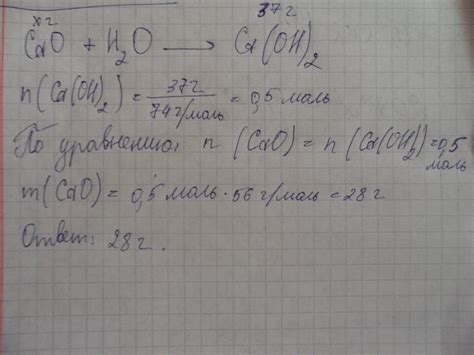 х г 37 г
CaO + H₂O → Ca(OH)₂
n(Ca(OH)₂) = 37г / 74 г/моль = 0,5 моль
По уравнению: n (CaO) = n (Ca(OH)₂) = 0,5 моль
m(CaO) = 0,5 моль · 56 г/моль = 28 г
Ответ: 28 г.